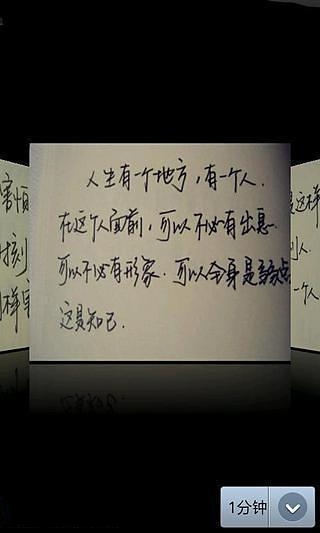 害怕
时刻
样
人生有一个地方，有一个人.
在这个人面前，可以不必有出息.
可以不必有形象.可以全身是缺点
这是知己.
是这样
别人.
一个人
1分钟